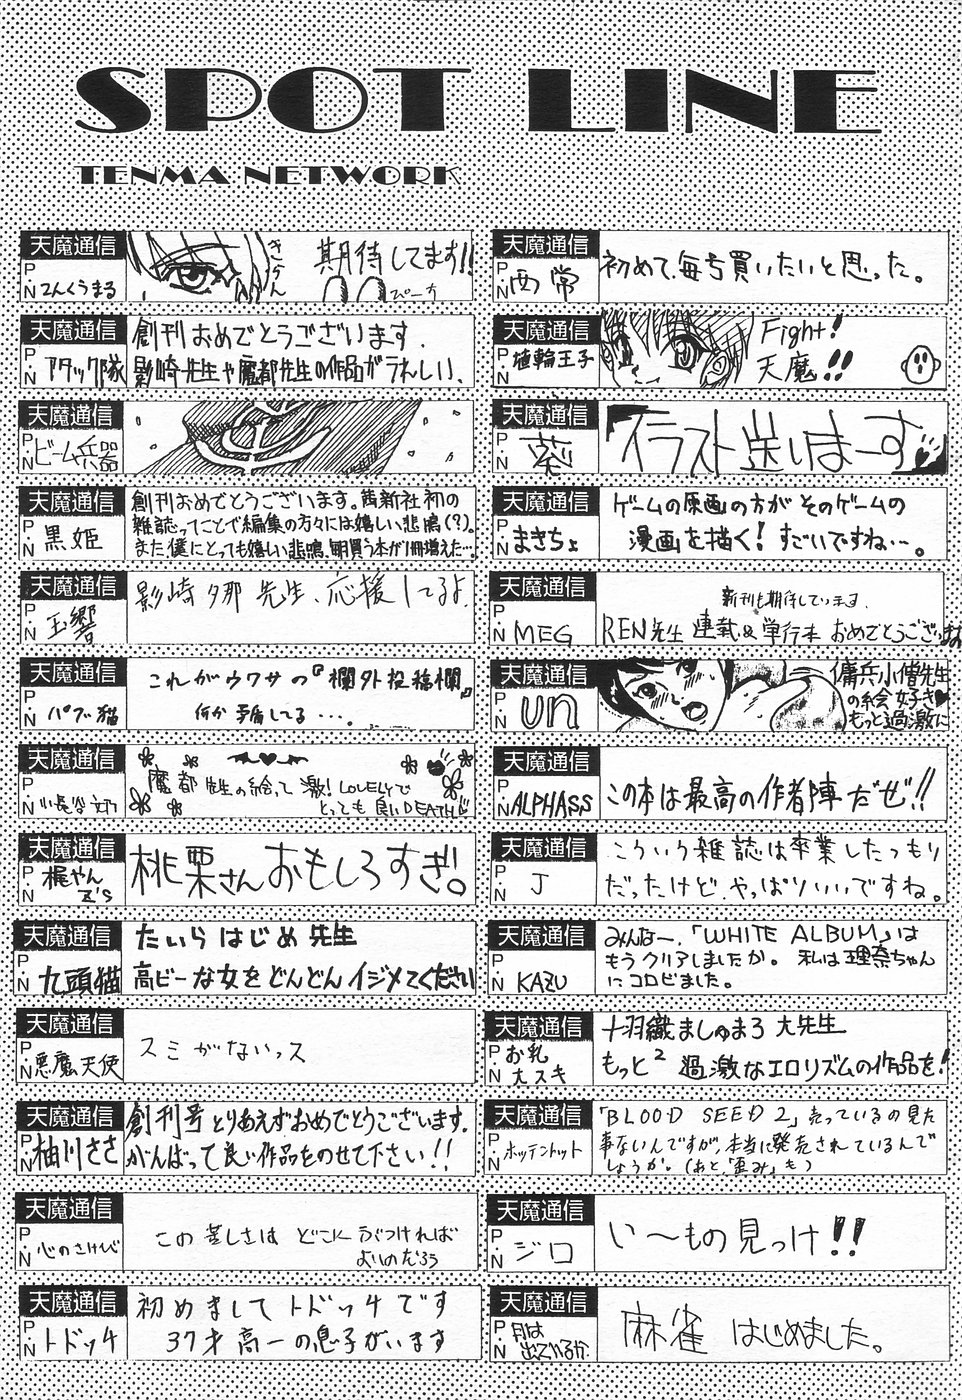 SPOT LINE
TENMA NETWORK
天魔通信
P.N てんくうまる
きかん
期待してます!!
ぴーち
天魔通信
P.N アタック隊
創刊おめでとうございます.
影崎先生や魔都先生の作品がうれしい.
天魔通信
P.N ビーム兵器
天魔通信
P.N 黒姫
創刊おめでとうございます。茜新社初の
雑誌ってことで編集の方々には嬉しい悲鳴(?)。
また僕にとっても嬉しい悲鳴、毎月買う本が1冊増えた…。
天魔通信
P.N 玉響
影崎夕那 先生、応援してるよ.
天魔通信
P.N パブ猫
これがウワサの『欄外投稿欄』
何か矛盾してる・・・.
天魔通信
P.N 小長谷
魔都 先生の絵って 激! LOVELYで
とっても 良いDEATH
天魔通信
P.N 梶やんZ's
桃栗さんおもしろすぎ。
天魔通信
P.N 九頭猫
たいらはじめ先生
高ビーな女をどんどんイジメてください
天魔通信
P.N 悪魔天使
スミがないっス
天魔通信
P.N 柚川ささ
創刊号とりあえずおめでとうございます.
がんばって良い作品をのせて下さい!!
天魔通信
P.N 心のさけび
この苦しさは どこに ぶつければ
よいのだろう
天魔通信
P.N トドッチ
初めまして トドッチです
37才 高一の息子がいます
天魔通信
P.N 西常
初めて、毎号買いたいと思った。
天魔通信
P.N 埴輪王子
Fight!
天魔!!
天魔通信
P.N 葵
イラスト送りまーす
天魔通信
P.N まきちょ
ゲームの原画の方がそのゲームの
漫画を描く! すごいですね…。
天魔通信
P.N MEG
新刊も期待しています.
REN先生 連載&単行本 おめでとうございます
天魔通信
P.N un
傭兵小僧先生
の絵 好き♥
もっと過激に
天魔通信
P.N ALPHASS
この本は最高の作者陣だぜ!!
天魔通信
P.N J
こういう雑誌は卒業したつもり
だったけど、やっぱりいいですね。
天魔通信
P.N KAZU
みんなー、「WHITE ALBUM」は
もうクリアしましたか。私は理奈ちゃん
にコロビました。
天魔通信
P.N お乳大スキ
十羽織ましゅまろ 大先生
もっと² 過激なエロリズムの作品を!
天魔通信
P.N ホッテントット
「BLOOD SEED 2」売っているの見た
事ないんですが、本当に発売されているんで
しょうか。(あと、「歪み」も)
天魔通信
P.N ジロ
い〜もの見っけ!!
天魔通信
P.N 月は出ているか
麻雀 はじめました。